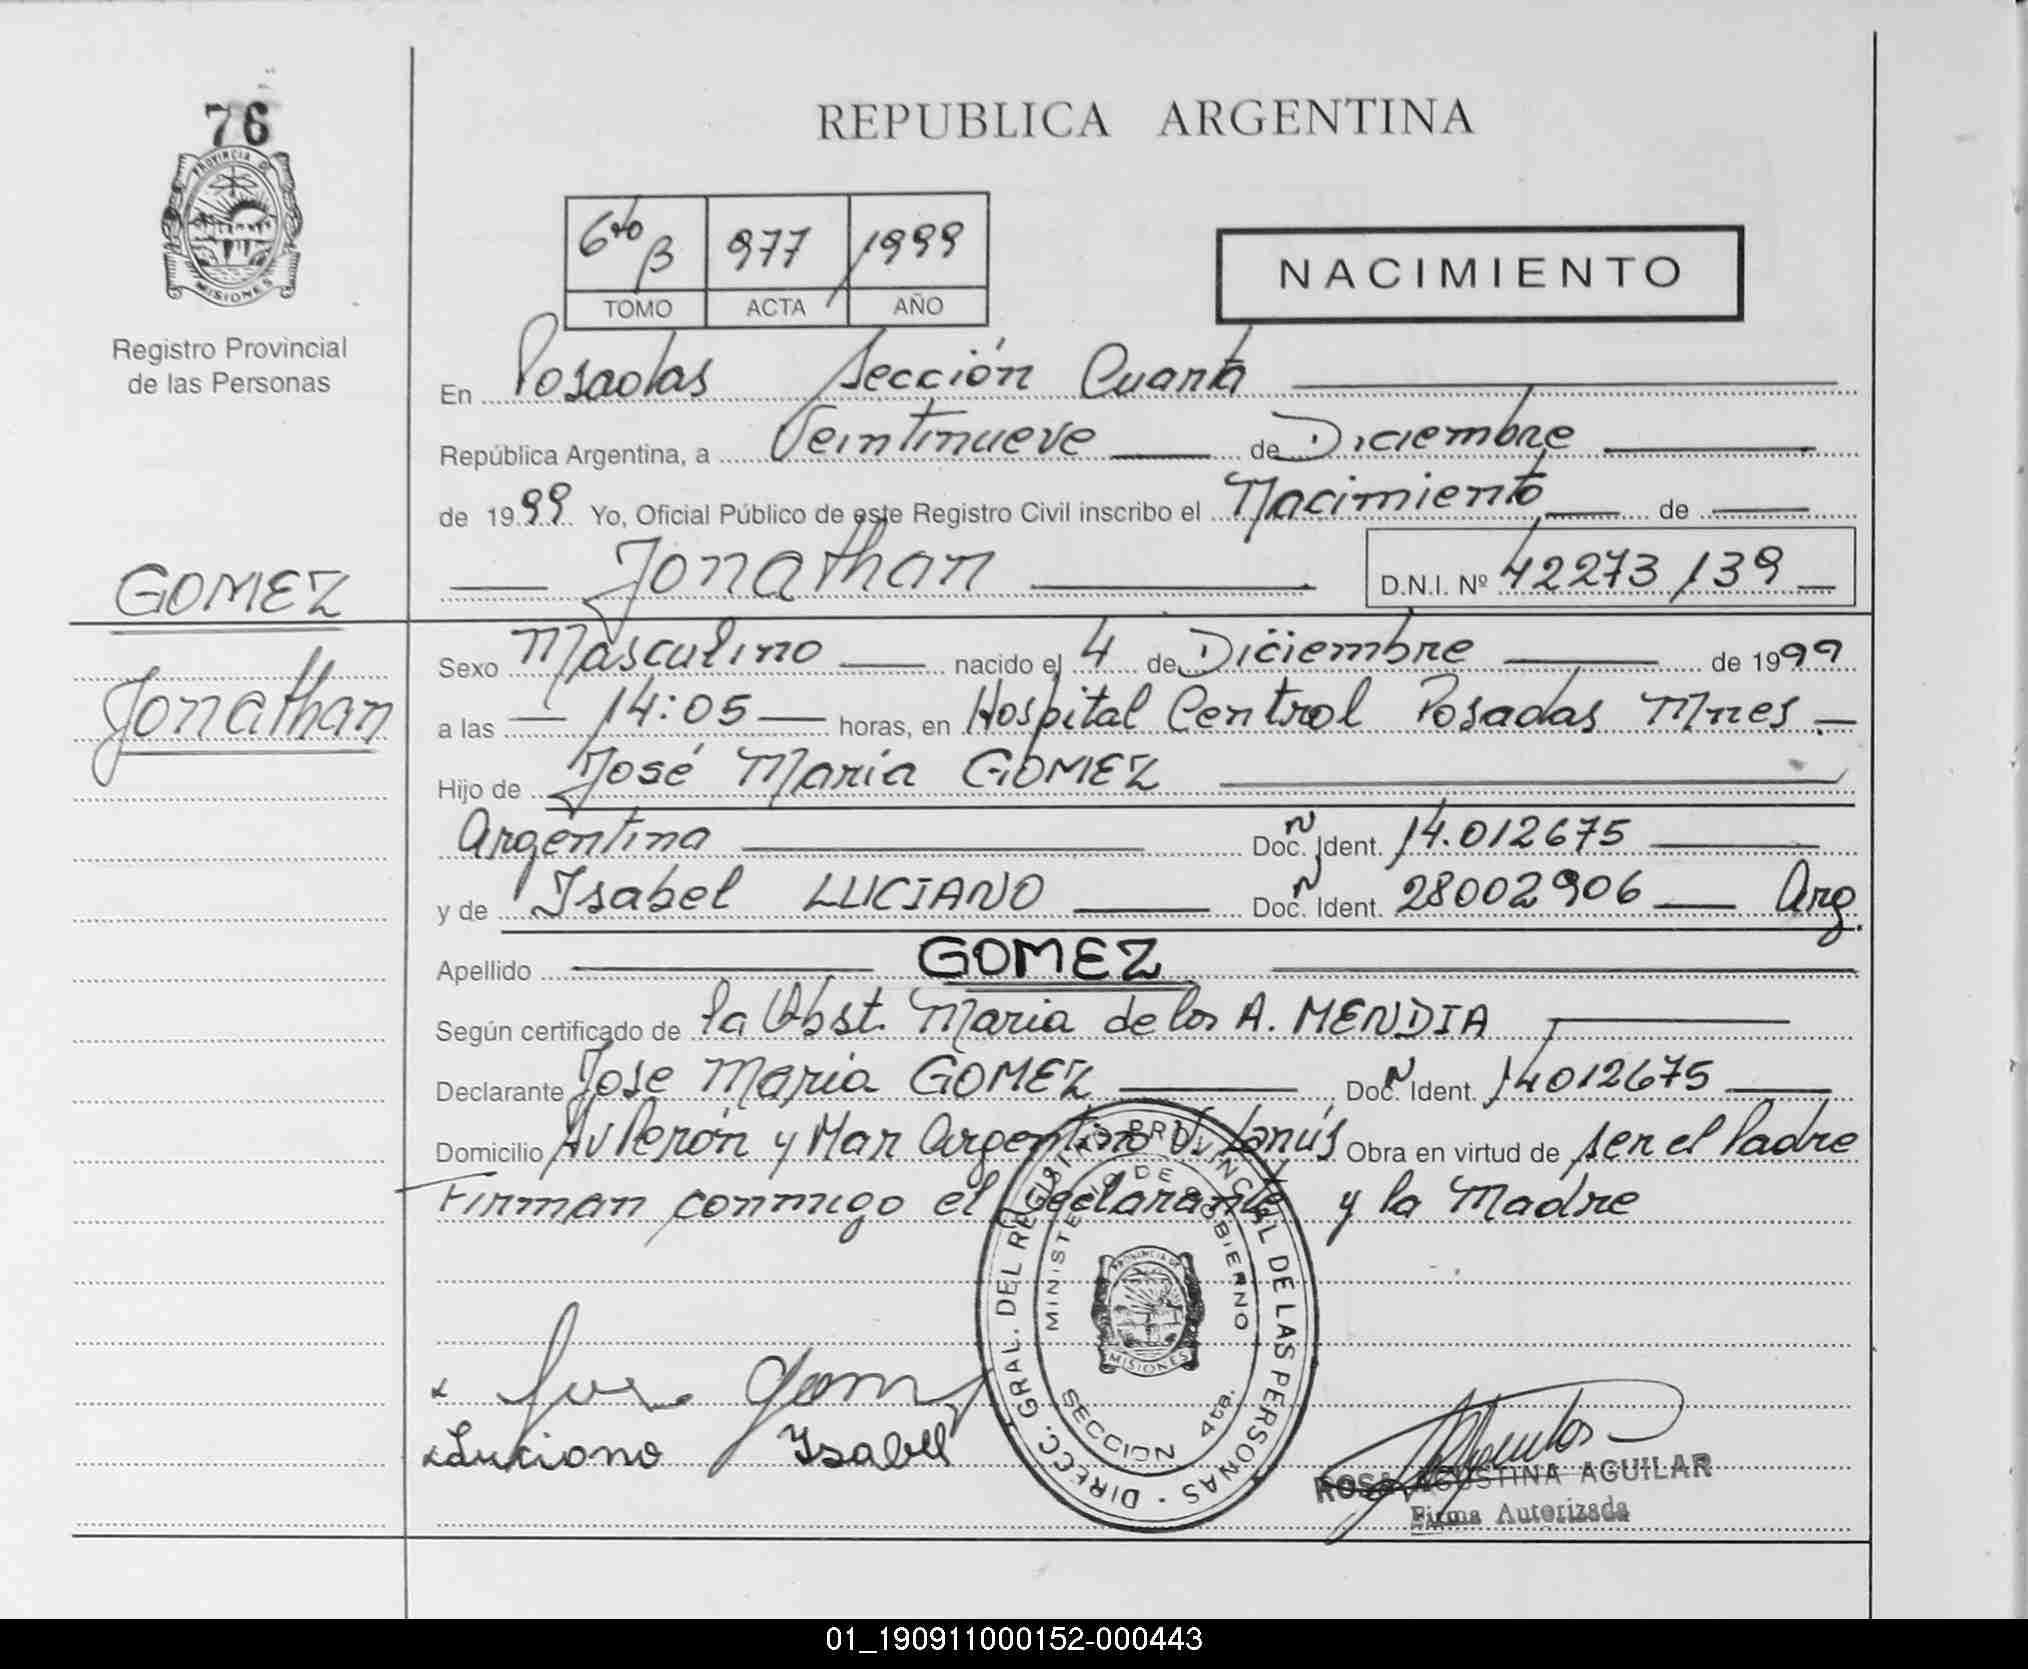 76
PROVINCIA DE
MISIONES
Registro Provincial
de las Personas
REPUBLICA ARGENTINA
6to B 977 1999
TOMO ACTA AÑO
NACIMIENTO
En Posadas Sección Cuarta
República Argentina, a Veintinueve de Diciembre
de 1999 Yo, Oficial Público de este Registro Civil inscribo el Nacimiento de
Jonathan D.N.I. Nº 42273139
GOMEZ
Jonathan
Sexo Masculino nacido el 4 de Diciembre de 1999
a las 14:05 horas, en Hospital Central Posadas Mnes
Hijo de José Maria GOMEZ
Argentina Doc. Ident. 14.012675
y de Isabel LUCIANO Doc. Ident. 28002906 Arg.
Apellido GOMEZ
Según certificado de la Obst. Maria de los A. MENDIA
Declarante Jose Maria GOMEZ Doc. Ident. 14012675
Domicilio Av Perón y Mar Argentino V. Lanús Obra en virtud de ser el Padre
Firman conmigo el Declarante y la Madre
DIRECC. GRAL. DEL REGISTRO PROVINCIAL DE LAS PERSONAS
MINISTERIO DE GOBIERNO
PROVINCIA DE
MISIONES
SECCION 4ta.
Luciano Isabel
ROSA AGUSTINA AGUILAR
Firma Autorizada
01_190911000152-000443